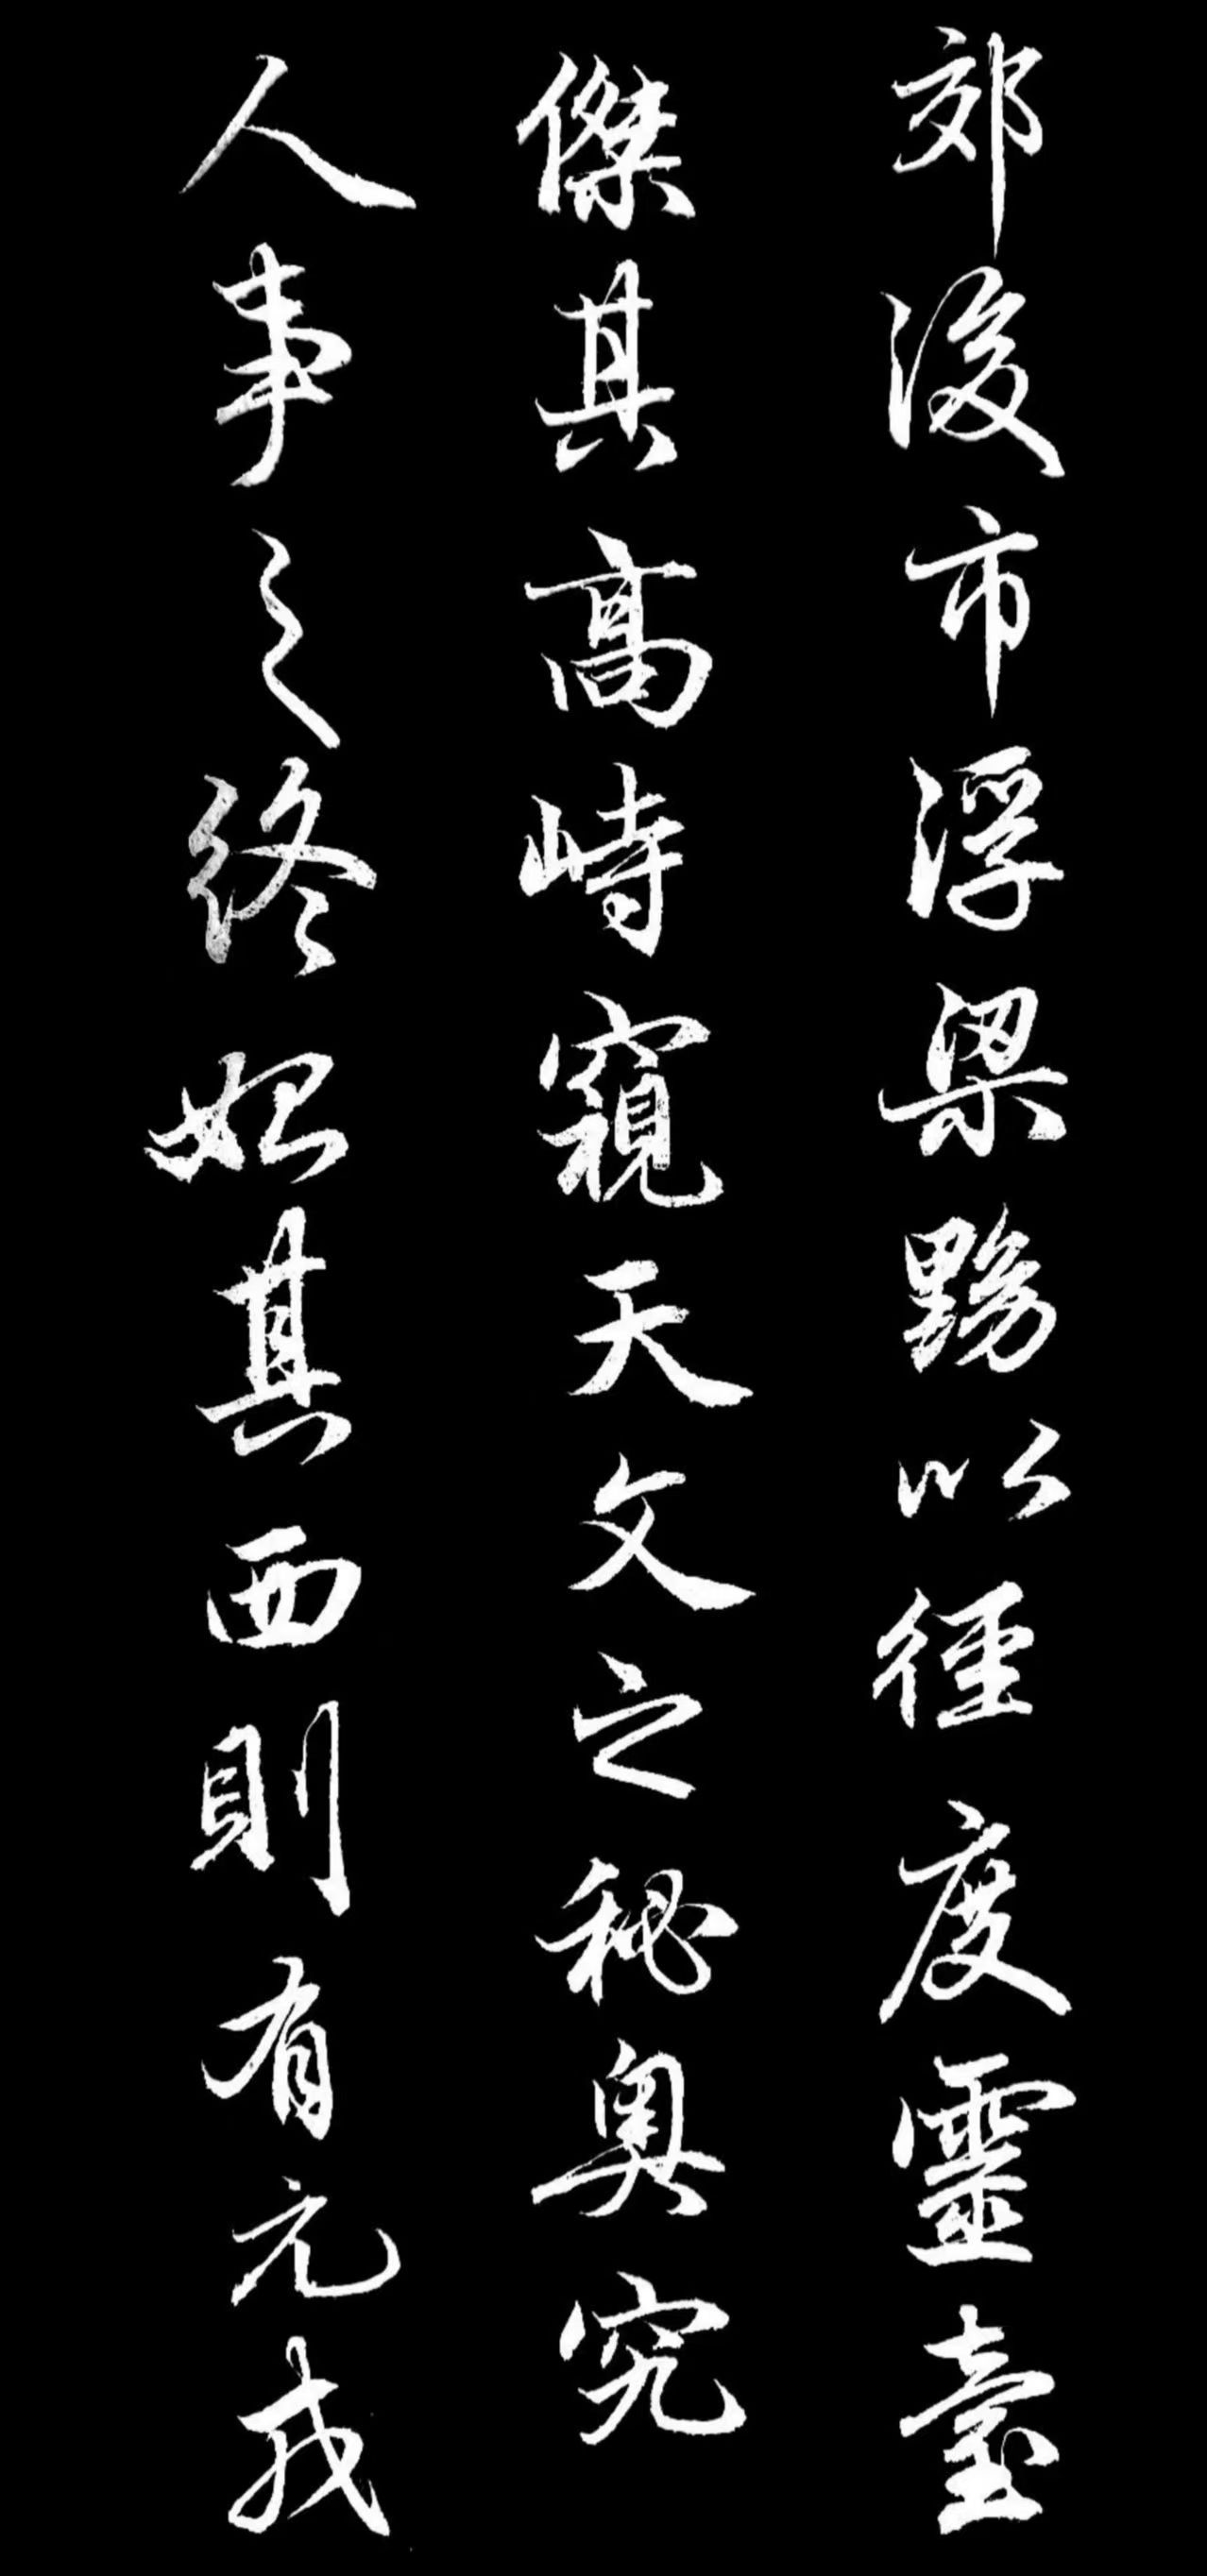 郊後市浮梁黝以徑度靈臺
傑其高峙窺天文之秘奧究
人事之終始其西則有元戎